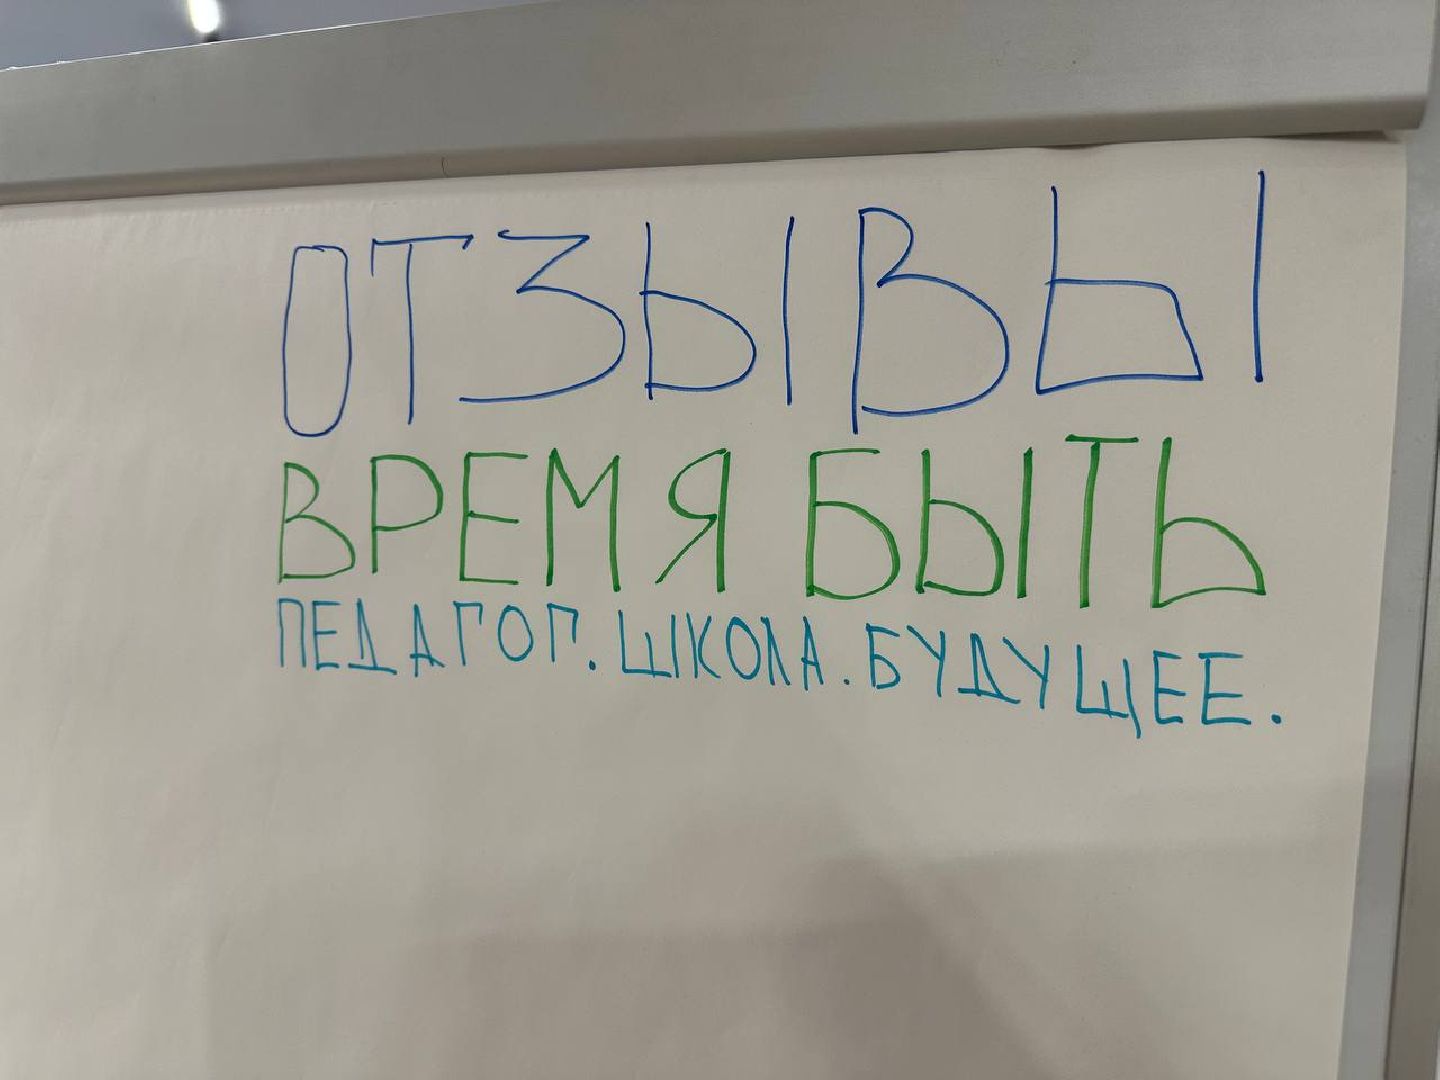 ОТЗЫВЫ
ВРЕМЯ БЫТЬ
ПЕДАГОГ. ШКОЛА. БУДУЩЕЕ.